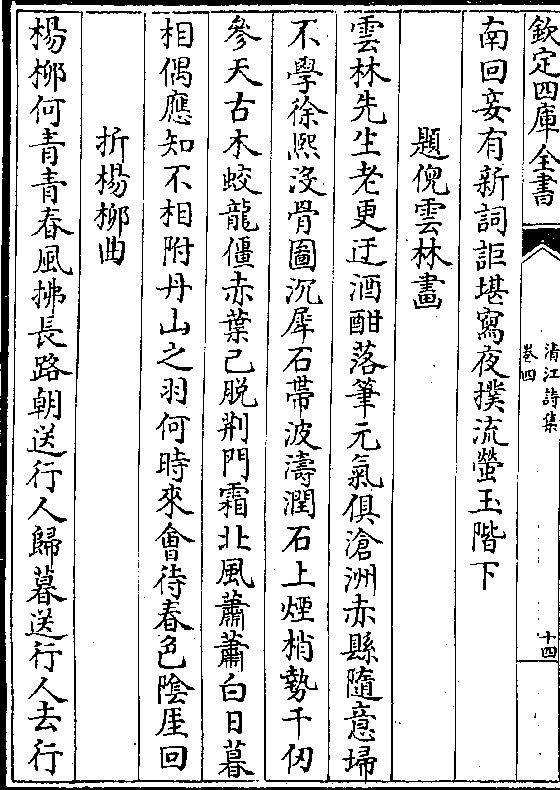 欽定四庫全書
清江詩集
卷四
十四
南回妾有新詞詎堪寫夜撲流螢玉階下
題倪雲林畫
雲林先生老更迂酒酣落筆元氣俱滄洲赤縣隨意埽
不學徐熙沒骨圖沉犀石帶波濤潤石上煙梢勢千仞
參天古木蛟龍僵赤葉已脫荆門霜北風蕭蕭白日暮
相偶應知不相附丹山之羽何時來會待春色陰厓回
折楊柳曲
楊柳何青青春風拂長路朝送行人歸暮送行人去行